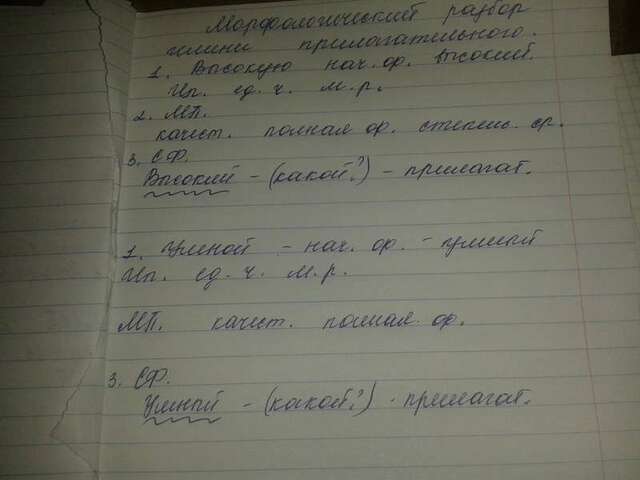 Морфологический разбор
имени прилагательного.
1. Высокую нач. ф. высокий.
Ип. ед. ч. м. р.
2. МП.
качест. полная ф. степень. ср.
3. СФ.
Высокий - (какой?) - прилагат.
1. Умной - нач. ф. - умный
Ип. ед. ч. м. р.
МП. качест. полная ф.
3. СФ.
Умный - (какой?) - прилагат.